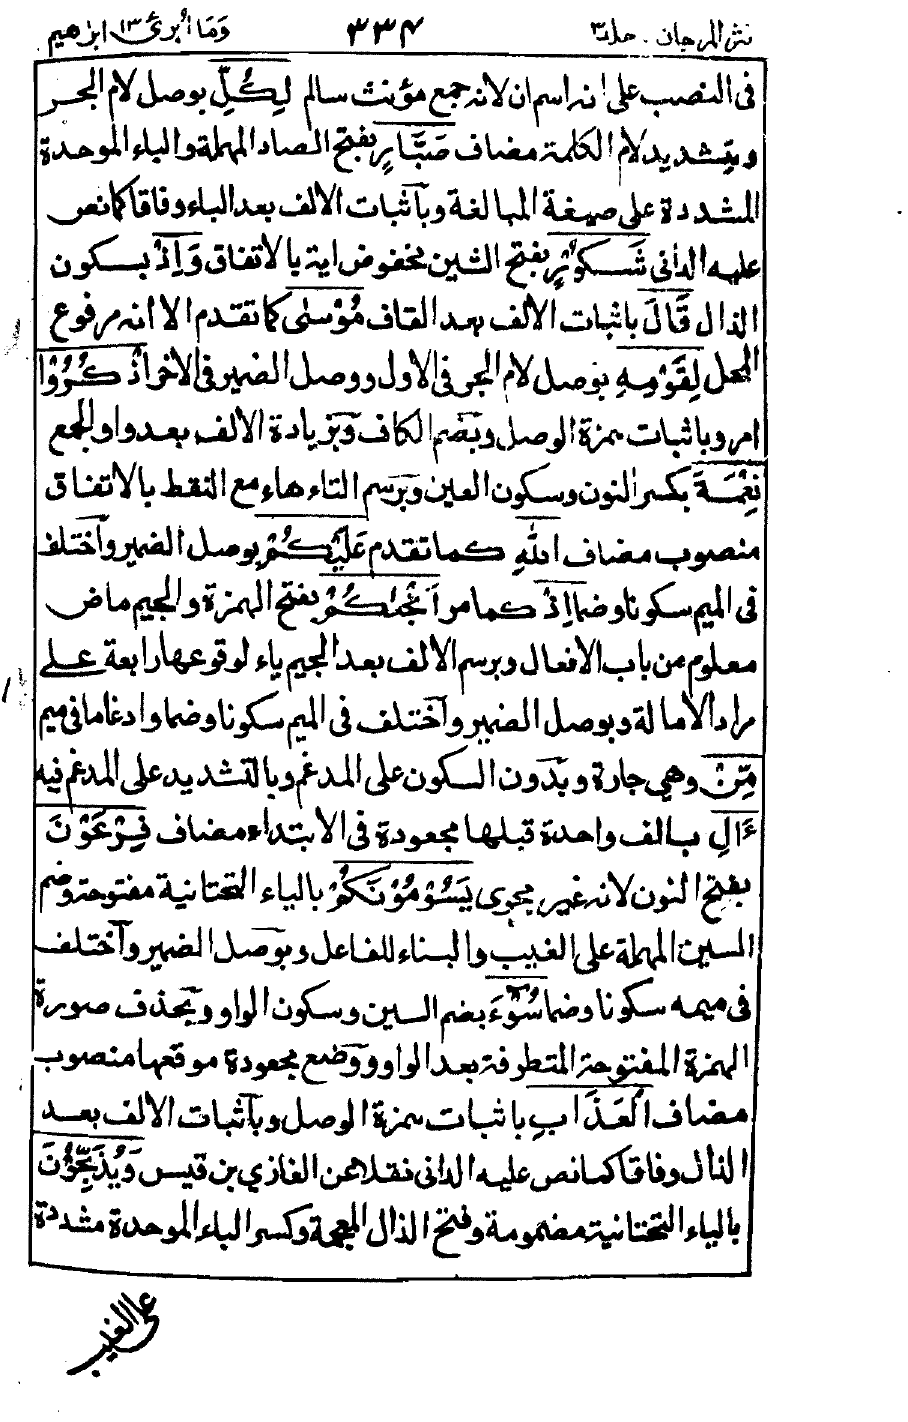 نثر المرجان . جلد ٣ ٣٣٤ وَمَا أُبَرِّئُ ١٣ ابراهيم
فى النصب على انه اسم ان لانه جمع مؤنث سالم لِكُلِّ بوصل لام الجر
وبتشديد لام الكلمة مضاف صَبَّارٍ بفتح الصاد المهملة والباء الموحدة
المشددة على صيغة المبالغة وباثبات الالف بعد الباء وفاقا كما نص
عليه الدانى شَكُوْرٍ بفتح الشين مخفوض اية بالاتفاق وَاِذْ بسكون
الذال قَالَ باثبات الالف بعد القاف مُوْسٰى كما تقدم الا انه مرفوع
المحل لِقَوْمِهِ بوصل لام الجر فى الاول ووصل الضمير فى الاخر اذْكُرُوْا
امر وباثبات همزة الوصل وبضم الكاف وبزيادة الالف بعد واو الجمع
نِعْمَةَ بكسر النون وسكون العين وبرسم التاء هاء مع النقط بالاتفاق
منصوب مضاف اللّٰهِ كما تقدم عَلَيْكُمْ بوصل الضمير واختلف
فى الميم سكونا وضما اِذْ كما مر اَنْجٰىكُمْ بفتح الهمزة والجيم ماض
معلوم من باب الافعال وبرسم الالف بعد الجيم ياء لوقوعها رابعة على
مراد الامالة وبوصل الضمير واختلف فى الميم سكونا وضما وادغاما فى ميم
مِّنْ وهى جارة وبدون السكون على المدغم وبالتشديد على المدغم فيه
ءَالِ بالف واحدة قبلها مجعودة فى الابتداء مضاف فِرْعَوْنَ
بفتح النون لانه غير مجرى يَسُوْمُوْنَكُمْ بالياء التحتانية مفتوحة وضم
السين المهملة على الغيب والبناء للفاعل وبوصل الضمير واختلف
فى ميمه سكونا وضما سُوْٓءَ بضم السين وسكون الواو وبحذف صورة
الهمزة المفتوحة المتطرفة بعد الواو ووضع مجعودة موقعها منصوب
مضاف الْعَذَابِ باثبات همزة الوصل وباثبات الالف بعد
الذال وفاقا كما نص عليه الدانى نقلا عن الغازي بن قيس وَيُذَبِّحُوْنَ
بالياء التحتانية مضمومة وفتح الذال المعجمة وكسر الباء الموحدة مشددة
على الغيب